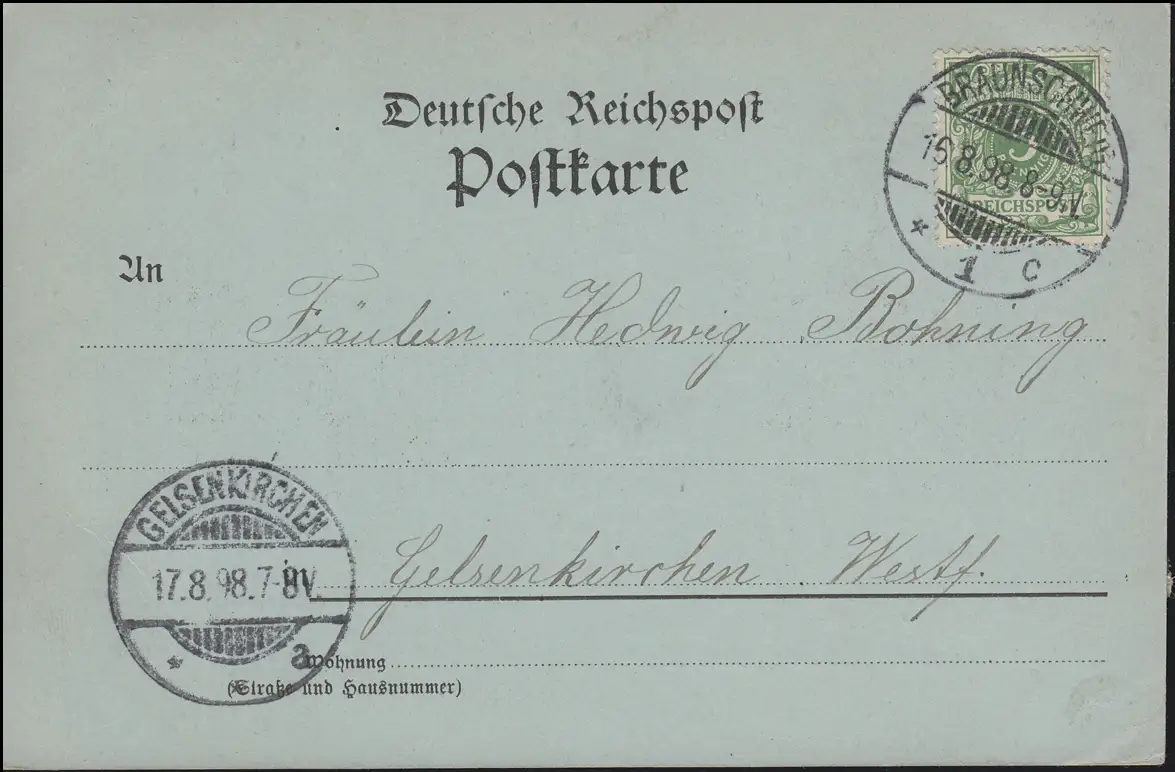 Deutsche Reichspost
Postkarte
BRAUNSCHWEIG
16.8.98.8-9.V.
* 1 c
5
REICHSPOST
An
Fräulein Hedwig Bohning
GELSENKIRCHEN
17.8.98.7-8V.
* a
in Gelsenkirchen Westf.
Wohnung
(Straße und Hausnummer)